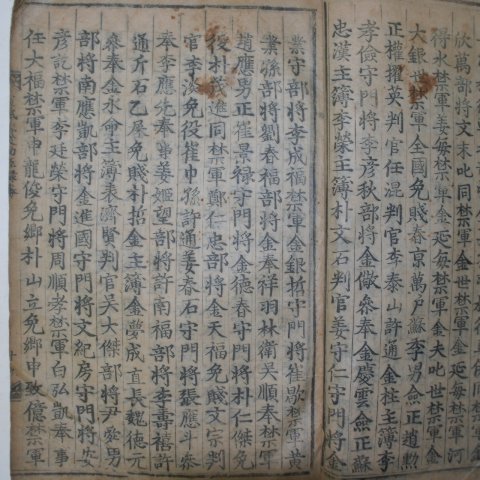 欣萬部將文末叱同禁軍金世禁軍金
得水禁軍姜每禁軍金延每禁軍河
大銀世禁軍全國免賤春京萬戶蘇李男僉正趙勲
正權擢英判官任混判官李泰山許通金柱主簿李
孝儉守門將李彦秋部將金儆叅奉金慶雲僉正蘇
忠漢主簿李榮主簿朴文石判官姜守仁守門將金
業守部將李成福禁軍金銀哲守門將崔歇禁軍黄
業孫部將劉春福部將金奉祥羽林衛吴順奉禁軍
趙應男正崔景禄守門將金德春守門將朴仁傑免
役朴義進同禁軍鄭仁忠部將金天福免賤文宗判
官李浚免役崔中孫許通姜春石守門將張應斗叅
奉李應先奉事姜姬望部將許南福部將李壽禧許
通斤石乙屎免賤朴哲金主簿金夢成直長魏德元
叅奉金水命主簿表濟賢判官吴大傑部將尹舜男
部將南應凱部將金進國守門將文紀房守門將安
彦說禁軍李廷榮守門將周順孝禁軍白弘凱奉事
任大福禁軍申龍俊免鄉朴山立免鄉申致億禁軍